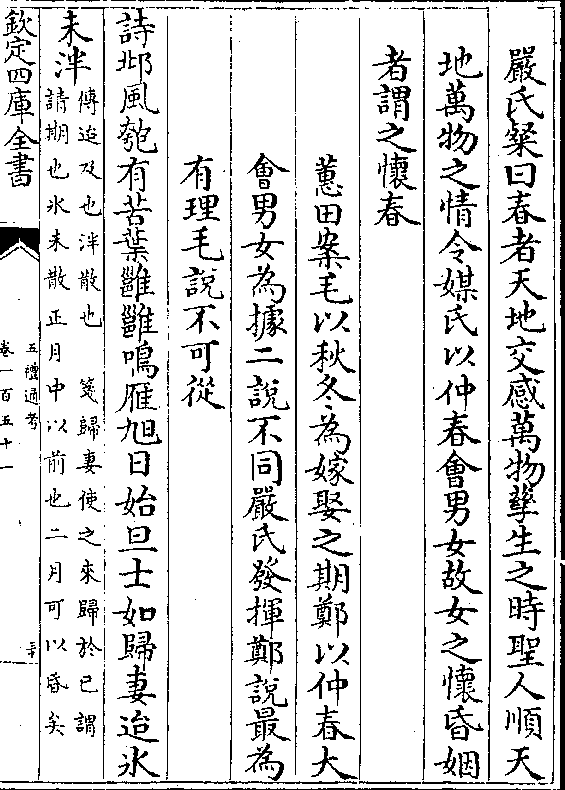 嚴氏粲曰春者天地交感萬物孳生之時聖人順天
地萬物之情令媒氏以仲春會男女故女之懷昏姻
者謂之懷春
蕙田案毛以秋冬為嫁娶之期鄭以仲春大
會男女為據二說不同嚴氏發揮鄭說最為
有理毛說不可從
詩邶風匏有苦葉雝雝鳴雁旭日始旦士如歸妻迨氷
未泮
傳迨及也泮散也　箋歸妻使之來歸於己謂
請期也氷未散正月中以前也二月可以昏矣
欽定四庫全書
五禮通考
卷一百五十一